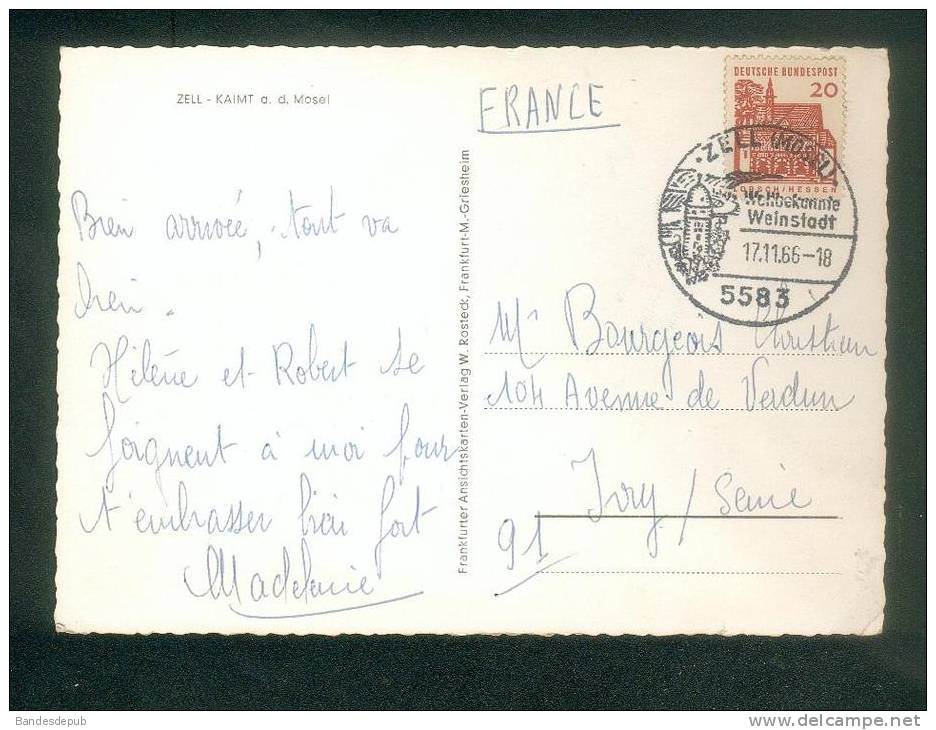 ZELL - KAIMT a. d. Mosel
FRANCE
DEUTSCHE BUNDESPOST
20
LORSCH/HESSEN
ZELL (MOSEL)
Weltbekannte
Weinstadt
17.11.66-18
5583
Bien arrivée, tout va
bien.
Hélène et Robert se
joignent à moi pour
t'embrasser bien fort
Madeleine
Frankfurter Ansichtskarten-Verlag W. Rosteck, Frankfurt-M.-Griesheim
Mr Bourgeois Christian
104 Avenue de Verdun
Ivry / Seine
91
Bandesdepub
www.delcampe.net